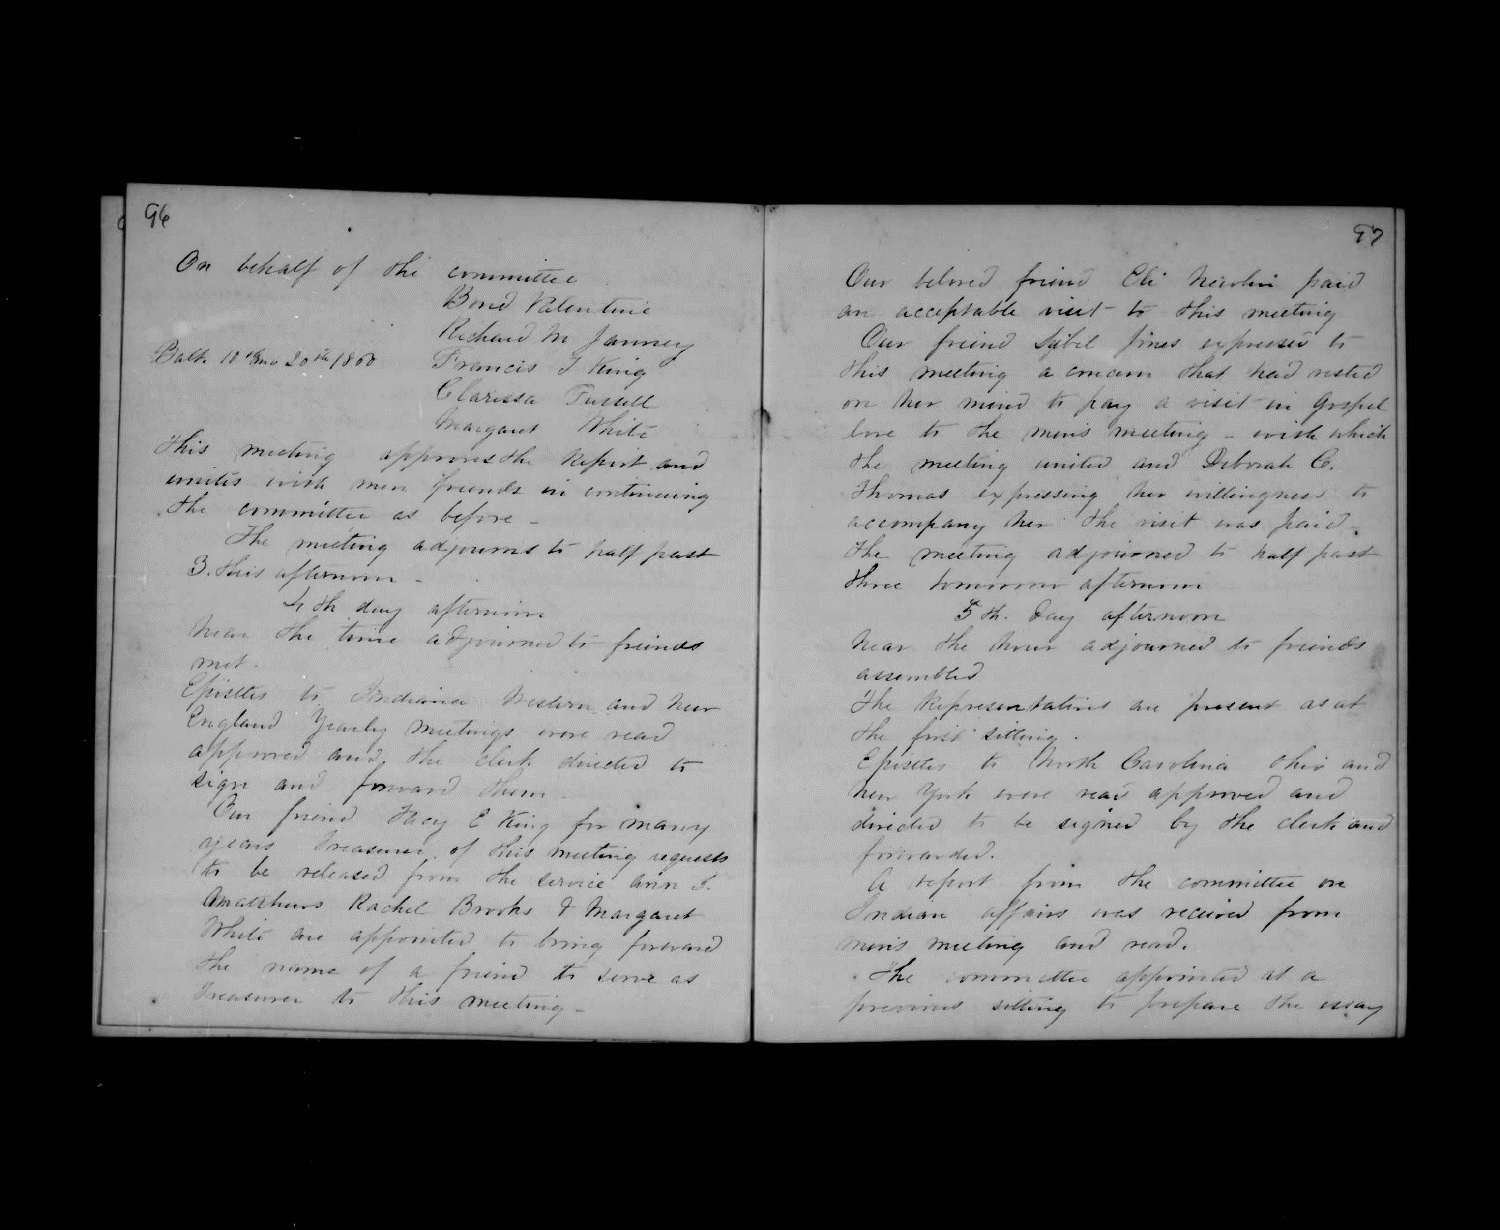 96
On behalf of the committee
Bond Valentine
Richard M Janney
Balt. 10th mo 20th 1860 Francis T King
Clarissa Tussell
Margaret White
This meeting approves the Report and
unites with men friends in continuing
the committee as before -
The meeting adjourns to half past
3. this afternoon -
4 th day afternoon
Near the time adjourned to friends
met -
Epistles to Indiana Western and New
England Yearly meetings were read
approved and the clerk directed to
sign and forward them -
Our friend Tacy E King for many
years Treasurer of this meeting requests
to be released from the service Ann S.
Matthews Rachel Brooks & Margaret
White are appointed to bring forward
the name of a friend to serve as
Treasurer to this meeting -
97
Our beloved friend Eli Newlin paid
an acceptable visit to this meeting
Our friend Sybil Jones expresses to
this meeting a concern that had rested
on her mind to pay a visit in Gospel
love to the mens meeting - with which
the meeting united and Deborah C.
Thomas expressing her willingness to
accompany her the visit was paid.
The meeting adjourned to half past
three tomorrow afternoon
5 th. Day afternoon
Near the hour adjourned to friends
assembled
The Representatives are present as at
the first sitting.
Epistles to North Carolina Ohio and
New York were read approved and
directed to be signed by the clerk and
forwarded.
A report from the committee on
Indian affairs was received from
mens meeting and read.
The committee appointed at a
previous sitting to prepare the essay